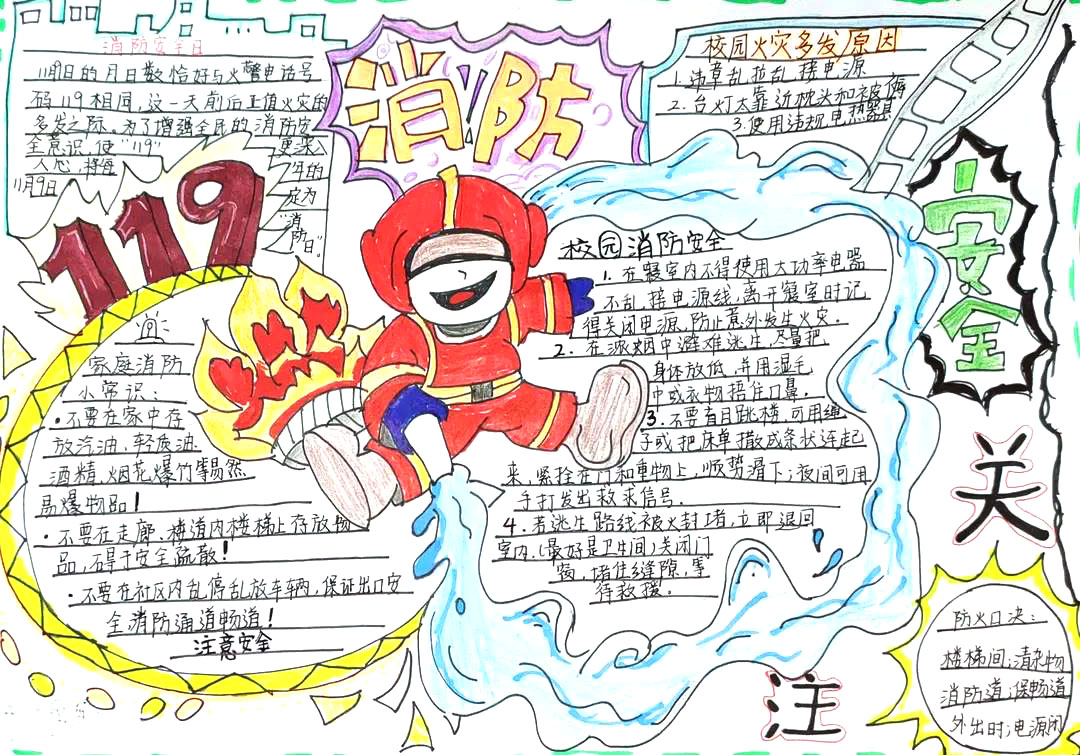 消防安全日
11月9日的月日数恰好与火警电话号
码119相同,这一天前后正值火灾的
多发之际。为了增强全民的消防安
全意识,使"119"更深入
人心,将每年的
11月9日定为
"消
防日"。
119
消防
校园火灾多发原因
1.违章乱拉乱接电源
2.台灯太靠近枕头和被褥
3.使用违规电热器具
安全
校园消防安全
1.在寝室内不得使用大功率电器
不乱接电源线,离开寝室时记
得关闭电源,防止意外发生火灾.
2.在浓烟中避难逃生,尽量把
身体放低,并用湿毛
巾或衣物捂住口鼻.
3.不要盲目跳楼,可用绳
子或把床单撒成条状连起
来,紧拴在门和重物上,顺势滑下;夜间可用
手打发出救求信号.
4.若逃生路线被火封堵,立即退回
室内.(最好是卫生间)关闭门
窗,堵住缝隙,等
待救援.
家庭消防
小常识:
·不要在家中存
放汽油,轻质油
酒精,烟花爆竹等易然
易爆物品!
·不要在走廊、楼道内楼梯上存放物
品,不得于安全疏散!
·不要在社区内乱停乱放车辆,保证出口安
全消防涌道畅道!
注意安全
关
注
防火口决:
楼梯间;清杂物
消防道;保畅道
外出时;电源闭